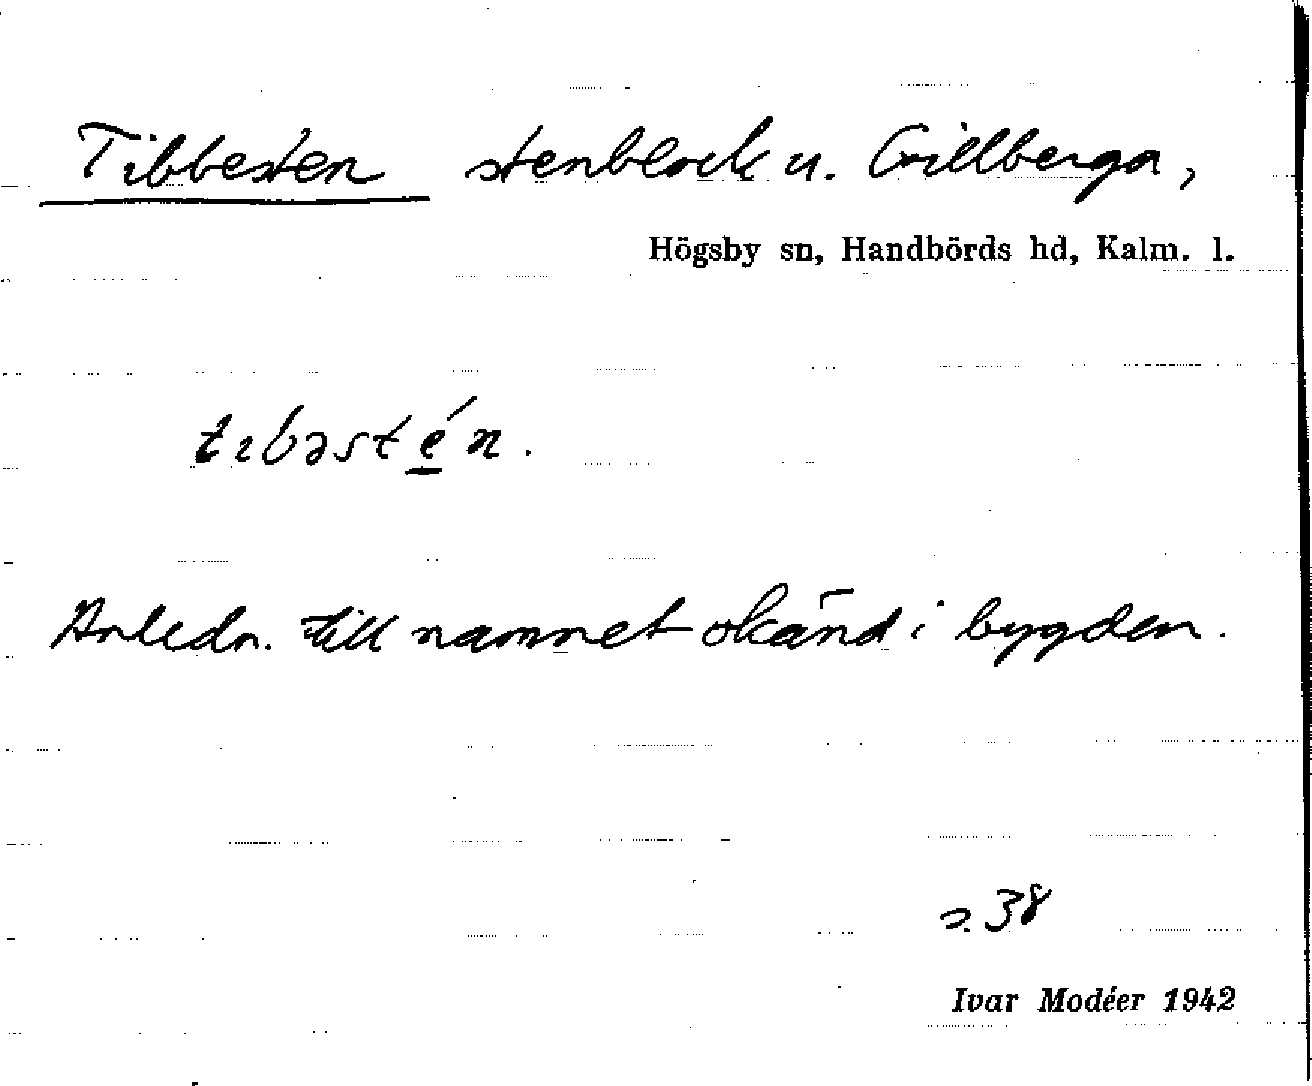 Tibbesten stenblock u. Gillberga,
Högsby sn, Handbörds hd, Kalm. l.
tɩbəstén.
Anledn. till namnet okänd i bygden.
s. 38
Ivar Modéer 1942